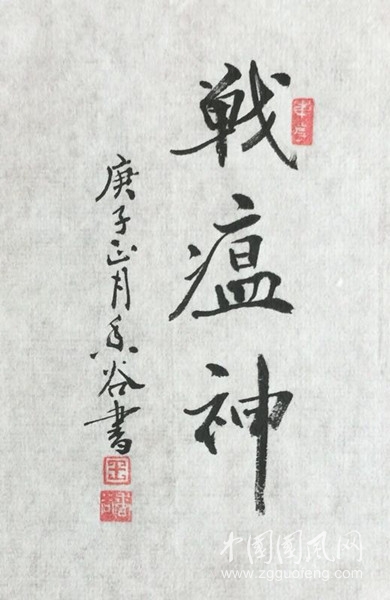 戦瘟神
庚子正月谷書
中国国风网
www.zgguofeng.com